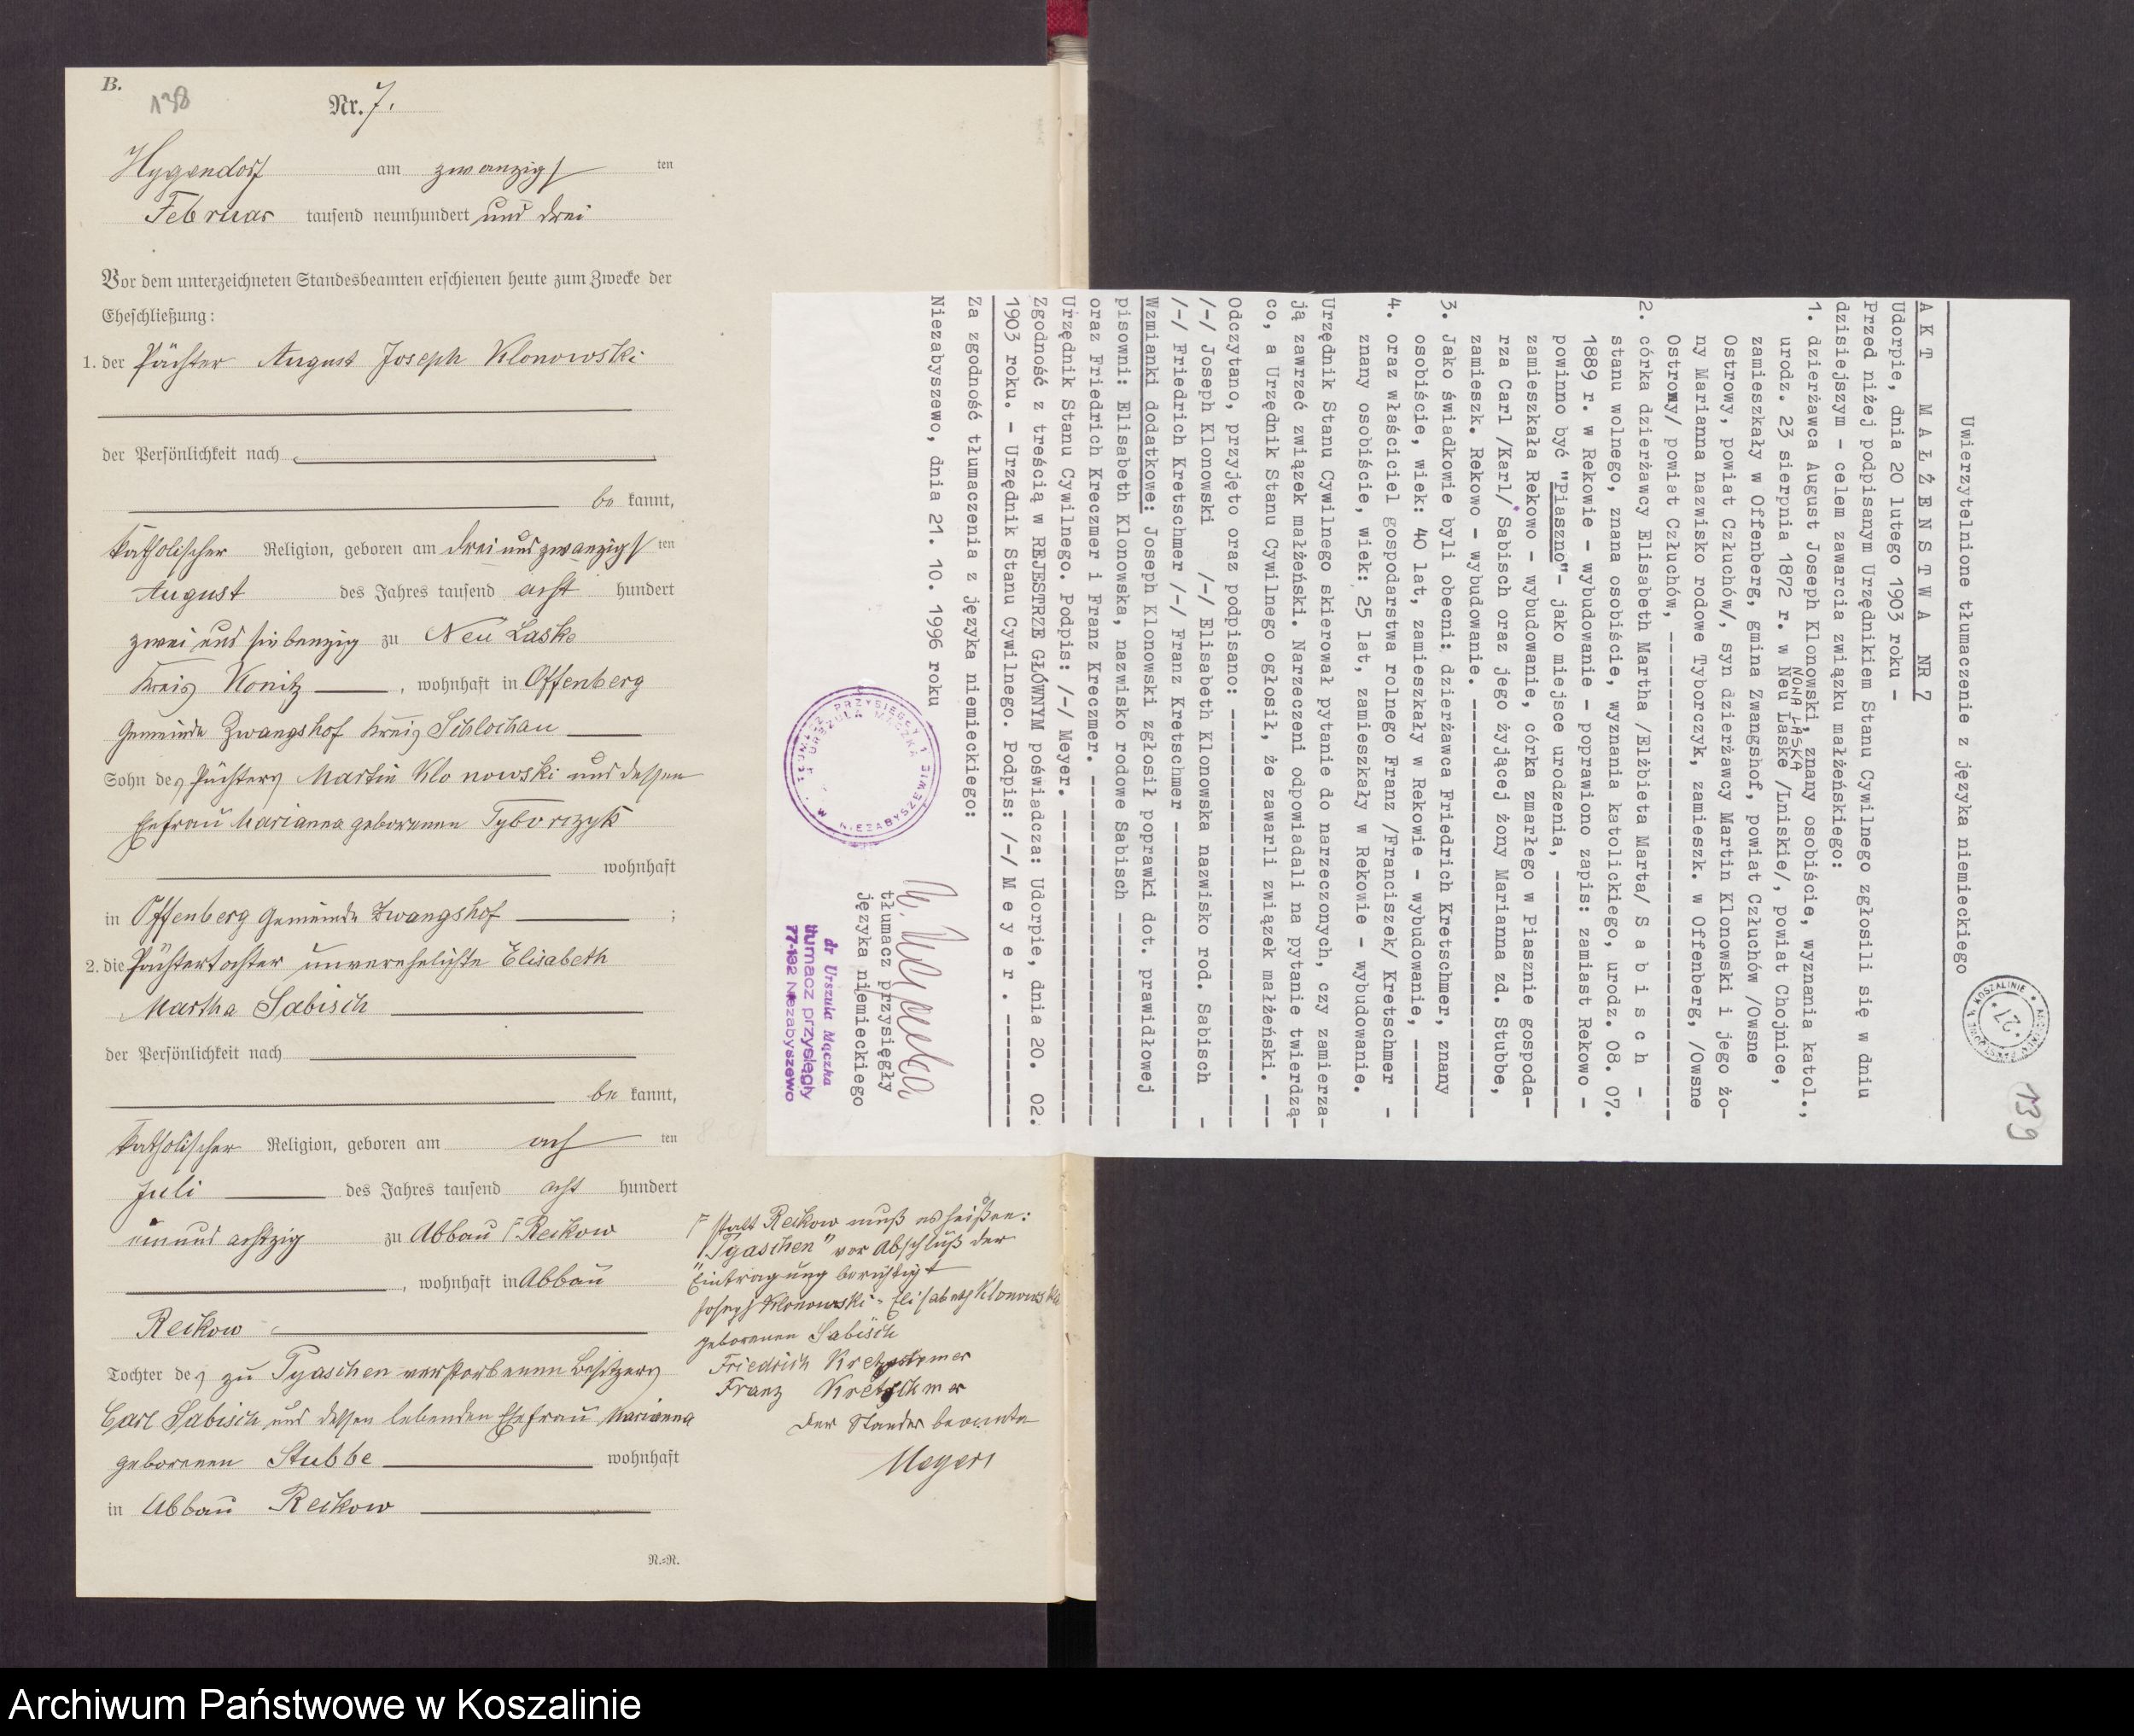 B.
138
Nr. 7.
Hygendorf am zwanzigsten
Februar tausend neunhundert und drei
Vor dem unterzeichneten Standesbeamten erschienen heute zum Zwecke der
Eheschließung:
1. der Pächter August Joseph Klonowski
der Persönlichkeit nach
be kannt,
katholischer Religion, geboren am drei und zwanzigsten
August des Jahres tausend acht hundert
zwei und siebenzig zu Neu Laske
Kreis Konitz, wohnhaft in Offenberg
Gemeinde Zwangshof Kreis Schlochau
Sohn des Pächters Martin Klonowski und dessen
Ehefrau Marianna geborenen Tyborczyk
wohnhaft
in Offenberg Gemeinde Zwangshof ;
2. die Pächtertochter unverehelichte Elisabeth
Martha Sabisch
der Persönlichkeit nach
be kannt,
katholischer Religion, geboren am ach ten
Juli des Jahres tausend acht hundert
ein und achtzig zu Abbau Γ Reckow
, wohnhaft in Abbau
Reckow
Tochter des zu Pyaschen verstorbenen Besitzers
Carl Sabisch und dessen lebenden Ehefrau Marianna
geborenen Stubbe wohnhaft
in Abbau Reckow
N.=N.
Γ statt Reckow muß es heißen:
"Pyaschen" vor Abschluß der
Eintragung berichtigt
Joseph Klonowski = Elisabeth Klonowska
geborenen Sabisch
Friedrich Kretzschmer
Franz Kretschmer
Der Standesbeamte
Meyer
139
KOSZALINIE
* 27 *
Uwierzytelnione tłumaczenie z języka niemieckiego
AKT MAŁŻENSTWA NR 7
Udorpie, dnia 20 lutego 1903 roku -
Przed niżej podpisanym Urzędnikiem Stanu Cywilnego zgłosili się w dniu
dzisiejszym - celem zawarcia związku małżeńskiego:
1. dzierżawca August Joseph Klonowski, znany osobiście, wyznania katol.,
NOWA ŁASKA
urodz. 23 sierpnia 1872 r. w Neu Laske /Lniskie/, powiat Chojnice,
zamieszkały w Offenberg, gmina Zwangshof, powiat Człuchów /Owsne
Ostrowy, powiat Człuchów/, syn dzierżawcy Martin Klonowski i jego żo-
ny Marianna nazwisko rodowe Tyborczyk, zamieszk. w Offenberg, /Owsne
Ostrowy/ powiat Człuchów, ----------
2. córka dzierżawcy Elisabeth Martha /Elżbieta Marta/ S a b i s c h -
stanu wolnego, znana osobiście, wyznania katolickiego, urodz. 08. 07.
1889 r. w Rekowie - wybudowanie - poprawiono zapis: zamiast Rekowo -
powinno być "Piaszno"- jako miejsce urodzenia, ----------
zamieszkała Rekowo - wybudowanie, córka zmarłego w Piasznie gospoda-
rza Carl /Karl/ Sabisch oraz jego żyjącej żony Marianna zd. Stubbe,
zamieszk. Rekowo - wybudowanie. ----------
3. Jako świadkowie byli obecni: dzierżawca Friedrich Kretschmer, znany
osobiście, wiek: 40 lat, zamieszkały w Rekowie - wybudowanie, -------
4. oraz właściciel gospodarstwa rolnego Franz /Franciszek/ Kretschmer -
znany osobiście, wiek: 25 lat, zamieszkały w Rekowie - wybudowanie.
Urzędnik Stanu Cywilnego skierował pytanie do narzeczonych, czy zamierza-
ją zawrzeć związek małżeński. Narzeczeni odpowiadali na pytanie twierdzą-
co, a Urzędnik Stanu Cywilnego ogłosił, że zawarli związek małżeński. ---
Odczytano, przyjęto oraz podpisano: ----------
/-/ Joseph Klonowski /-/ Elisabeth Klonowska nazwisko rod. Sabisch -
/-/ Friedrich Kretschmer /-/ Franz Kretschmer ----------
Wzmianki dodatkowe: Joseph Klonowski zgłosił poprawki dot. prawidłowej
pisowni: Elisabeth Klonowska, nazwisko rodowe Sabisch ----------
oraz Friedrich Kreczmer i Franz Kreczmer. ----------
Urzędnik Stanu Cywilnego. Podpis: /-/ Meyer. ----------
Zgodność z treścią w REJESTRZE GŁÓWNYM poświadcza: Udorpie, dnia 20. 02.
1903 roku. - Urzędnik Stanu Cywilnego. Podpis: /-/ M e y e r . ----------
Za zgodność tłumaczenia z języka niemieckiego:
Niezabyszewo, dnia 21. 10. 1996 roku
tłumacz przysięgły
języka niemieckiego
dr Urszula Mączka
tłumacz przysięgły
77-132 Niezabyszewo
TŁUMACZ PRZYSIĘGŁY
URSZULA MĄCZKA
W NIEZABYSZEWIE
Archiwum Państwowe w Koszalinie